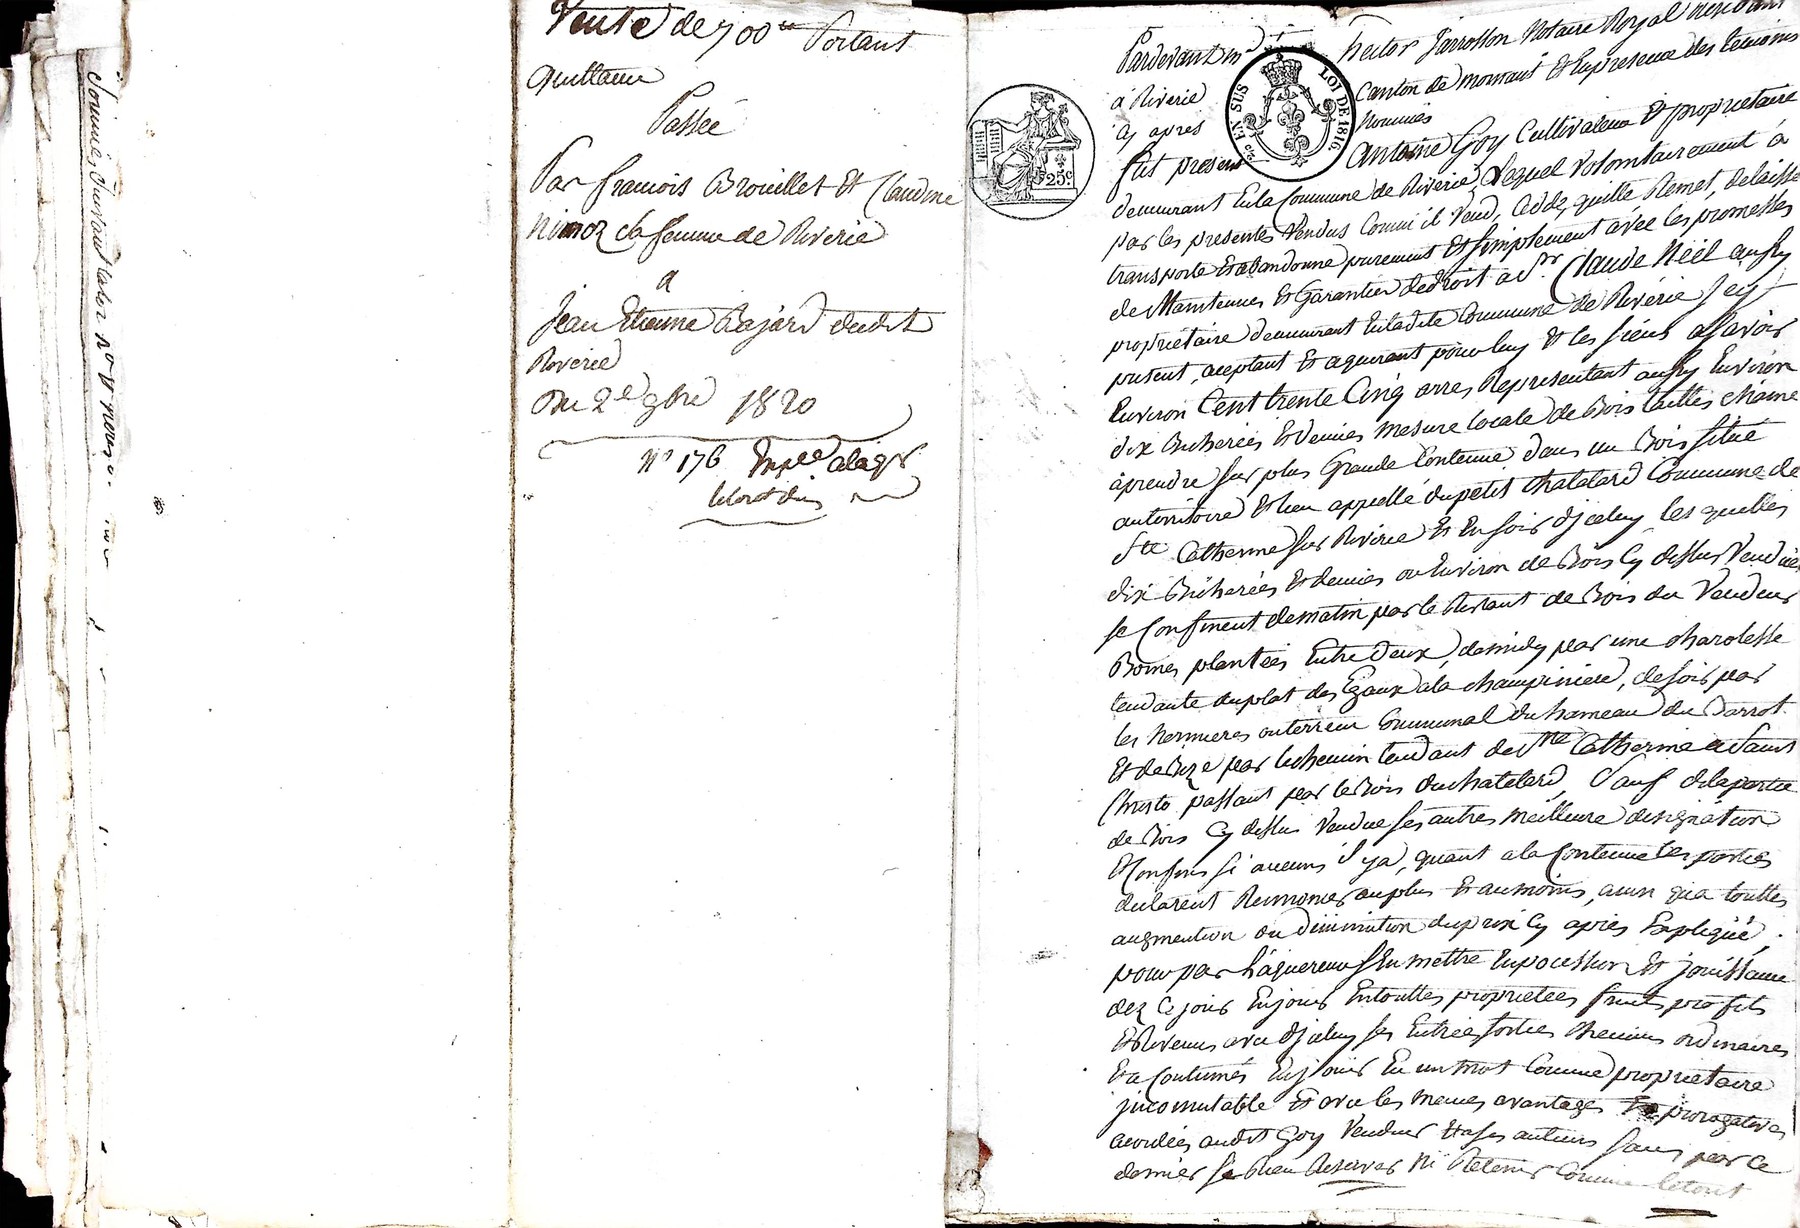 Vente de 700 Portant
quittance
Passée
Par francois Brouillet Et Claudine
nimoz sa femme de Riverie
a
Jean Etienne Bajard dudit
Riverie
Du 2e 9bre 1820
N° 176
Pardevant me hector Jarrosson Notaire Royal residant
à Riverie Canton de mornant Et En presence des temoins
cy apres Nommés
EN SUS
LOI DE 1816.
25c
fut present Antoine Goy Cultivateur Et propriétaire
demeurant En la Commune de Riverie, Lequel Volontairement à
par les presentes Vendus Comme il Vend, Cedde, quitte Remet, delaisse
transporte Et abandonne purement Et simplement avec les promesses
de Maintenue Et Garantie de droit a Sr Claude Neël aussy
propriétaire demeurant En ladite Commune de Riverie Jcy
présent, aceptant Et aquerant pour luy Et les siens assavoir
Environ Cent trente Cinq arres Representant aussy Environ
dix Bicherées Et demies mesure locale de Bois taillis chêne
à prendre sur plus Grande Contenue dans un Bois situé
au territoire Et lieu appellé du petit Chatelard Commune de
Ste Catherine sur Riverie Et En soir djceluy les quelles
dix Bicherées Et demies ou Environ de Bois Cy dessus Vendues
se Confinent de matin par le Restant de Bois du Vendeur
Bornes plantées Entre Deux, de midy par une charolesse
tendante du plat des Egaux a la champinière, de soir par
les hermieres ou terrein Communal du hameau du Barrot
Et de Bize par le chemin tendant de Ste Catherine a Saint
Christo passant par le Bois du chatelard, Sauf de la partie
de Bois Cy dessus Vendue ses autres meilleure designation
Et Confins si aucuns il y a, quant a la Contenue les parties
declarent Renoncer au plus Et au moins, ainsi qu'a touttes
augmention ou Diminution du prix Cy après Expliqué,
pour par l'aquereur s'En mettre En possession Et jouissance
dez Ce jour En jouir En touttes proprietées fruits profits
Et Revenus avec djceluy ses Entrées sorties chemins ordinaires
Et a Coutumés En jouir En un mot Comme propriétaire
jncomutable Et avec les memes avantages Et prerogatives
acordées audit Goy Vendeur Et a ses auteurs sans par Ce
dernier se Rien Reserver Ni Retenir Comme le tout